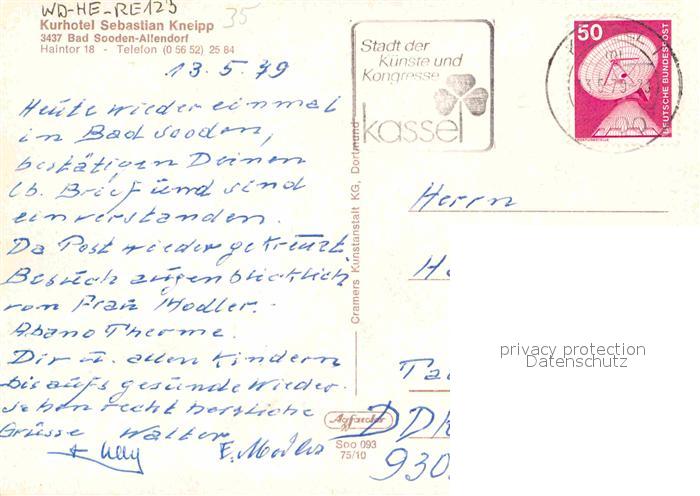 WD-HE-RE123
35
Kurhotel Sebastian Kneipp
3437 Bad Sooden-Allendorf
Haintor 18 - Telefon (0 56 52) 25 84
13.5.79
Heute wieder einmal
in Bad Sooden,
bestätigen Deinen
lb. Brief und sind
einverstanden.
Da Post wieder gekreuzt.
Besuch augenblicklich
von Frau Modler.
Abano Therme.
Dir u. allen Kindern
bis aufs gesunde Wieder-
sehen recht herzliche
Grüsse Walter
E. Modler
Cramers Kunstanstalt KG, Dortmund
Stadt der
Künste und
Kongresse
kassel
50
DEUTSCHE BUNDESPOST
Herrn
H
Ta
DDR
930
Agfacolor
Soo 093
75/10
privacy protection
Datenschutz